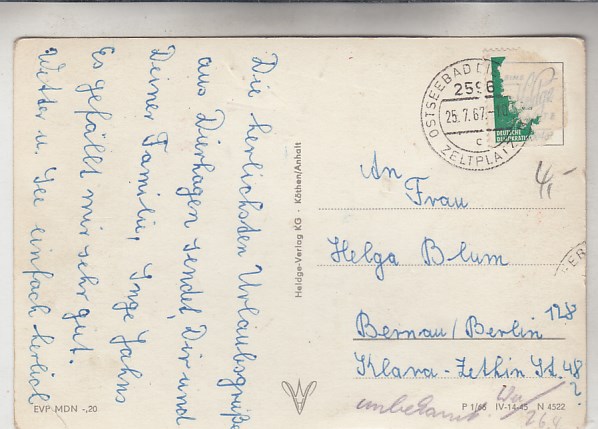 Die herlichsten Urlaubsgrüße
aus Dierhagen sendet, Dir und
Deiner Familie, Inge Jahns
Es gefällt mir sehr gut.
Wetter u. See einfach herlich
Heldge-Verlag KG · Köthen/Anhalt
OSTSEEBAD
2596
25.7.67
c
ZELTPLATZ
DEUTSCHE
DEMOKRATISCHE
An
Frau
Helga Blum
128
Bernau/Berlin
Klara-Zethin St. 48
?
unbekannt.
EVP MDN -,20
P 1/66 IV-14-45 N 4522